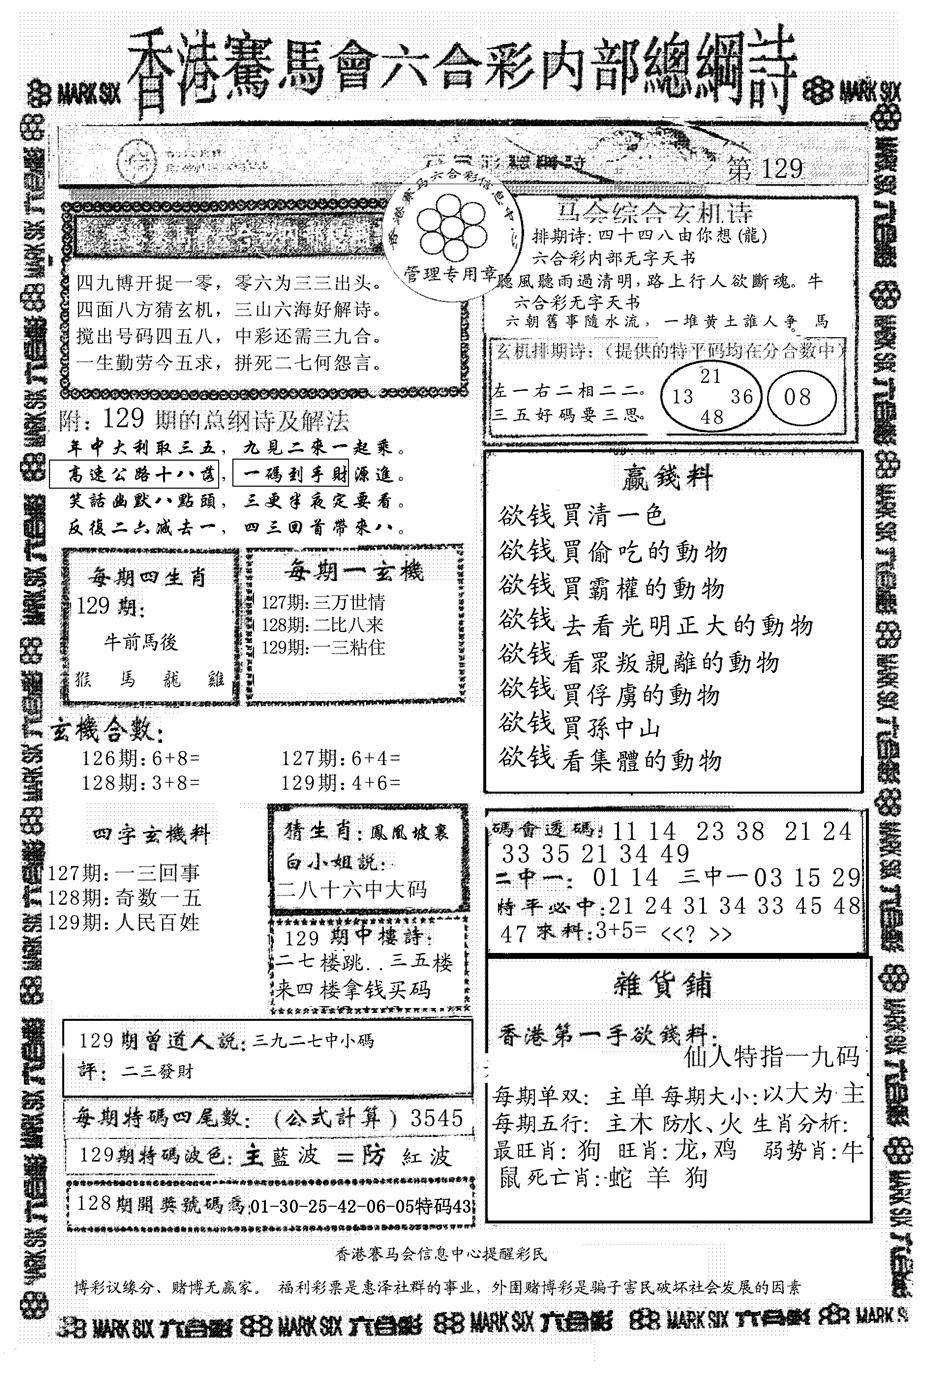 香港賽馬會六合彩内部總綱詩
MARK SIX
MARK SIX
第 129
香港赛马六合彩信息中
管理专用章
四九博开捉一零，零六为三三出头。
四面八方猜玄机，三山六海好解诗。
搅出号码四五八，中彩还需三九合。
一生勤劳今五求，拼死二七何怨言。
马会综合玄机诗
排期诗: 四十四八由你想 (龍)
六合彩内部无字天书
聽風聽雨過清明, 路上行人欲斷魂。牛
六合彩无字天书
六朝舊事隨水流，一堆黃土誰人争 馬
玄机排期诗:（提供的特平码均在分合数中）
左一右二相二二。
三五好碼要三思。
21
13 36
48
08
附: 129 期的总纲诗及解法
年中大利取三五，九見二來一起乘。
高速公路十八落，一碼到手財源進。
笑話幽默八點頭，三更半夜定要看。
反復二六减去一，四三回首帶來八。
每期四生肖
129 期:
牛前馬後
猴 馬 龍 雞
每期一玄機
127期: 三万世情
128期: 二比八来
129期: 一三粘住
赢錢料
欲钱買清一色
欲钱買偷吃的動物
欲钱買霸權的動物
欲钱去看光明正大的動物
欲钱看眾叛親離的動物
欲钱買俘虜的動物
欲钱買孫中山
欲钱看集體的動物
玄機合數:
126期: 6+8= 127期: 6+4=
128期: 3+8= 129期: 4+6=
四字玄機料
127期: 一三回事
128期: 奇数一五
129期: 人民百姓
猜生肖: 鳳凰坡裏
白小姐説:
二八十六中大码
129 期中樓詩:
二七楼跳..三五楼
来四楼拿钱买码
碼會透碼: 11 14 23 38 21 24
33 35 21 34 49
二中一: 01 14 三中一 03 15 29
特平必中: 21 24 31 34 33 45 48
47 來料: 3+5= <<? >>
雜貨鋪
香港第一手欲錢料:
仙人特指一九码
每期单双: 主单 每期大小: 以大为主
每期五行: 主木 防水、火 生肖分析:
最旺肖: 狗 旺肖: 龙, 鸡 弱势肖: 牛
鼠 死亡肖: 蛇 羊 狗
129期曾道人説: 三九二七中小碼
評: 二三發財
每期特碼四尾數: (公式計算) 3545
129期特碼波色: 主藍波 =防 紅波
128期開獎號碼爲:01-30-25-42-06-05特码43
香港赛马会信息中心提醒彩民
博彩议缘分、赌博无赢家。 福利彩票是惠泽社群的事业，外围赌博彩是骗子害民破坏社会发展的因素
MARK SIX 六合彩 MARK SIX 六合彩 MARK SIX 六合彩 MARK SIX 六合彩 MARK SI